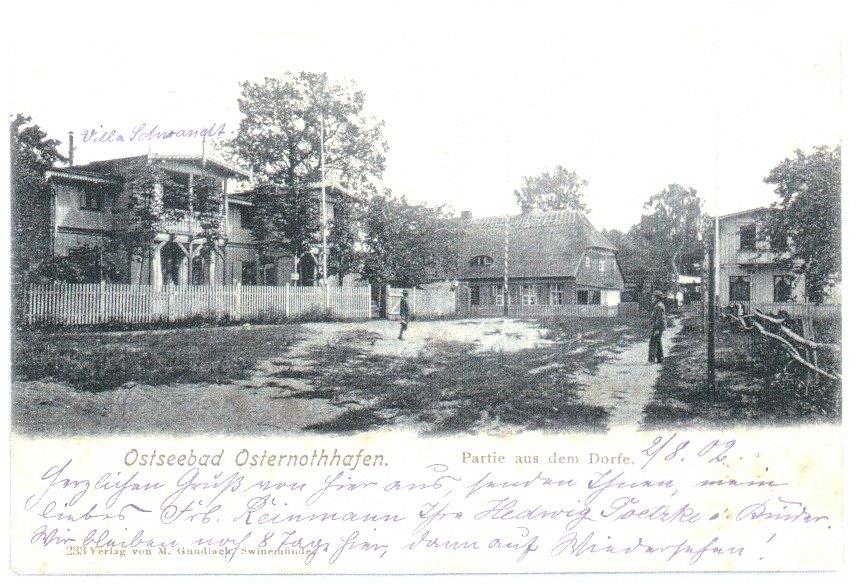 Villa Schwandt.
Ostseebad Osternothhafen.
Partie aus dem Dorfe. 2/8. 02.
Herzlichen Gruß von hier aus, senden Ihnen, mein
liebes Frl. Reinmann Ihre Hedwig u. Bruder.
Wir bleiben noch 8 Tage hier, dann auf Wiedersehen!
233 Verlag von M. Gundlach, Swinemünde.